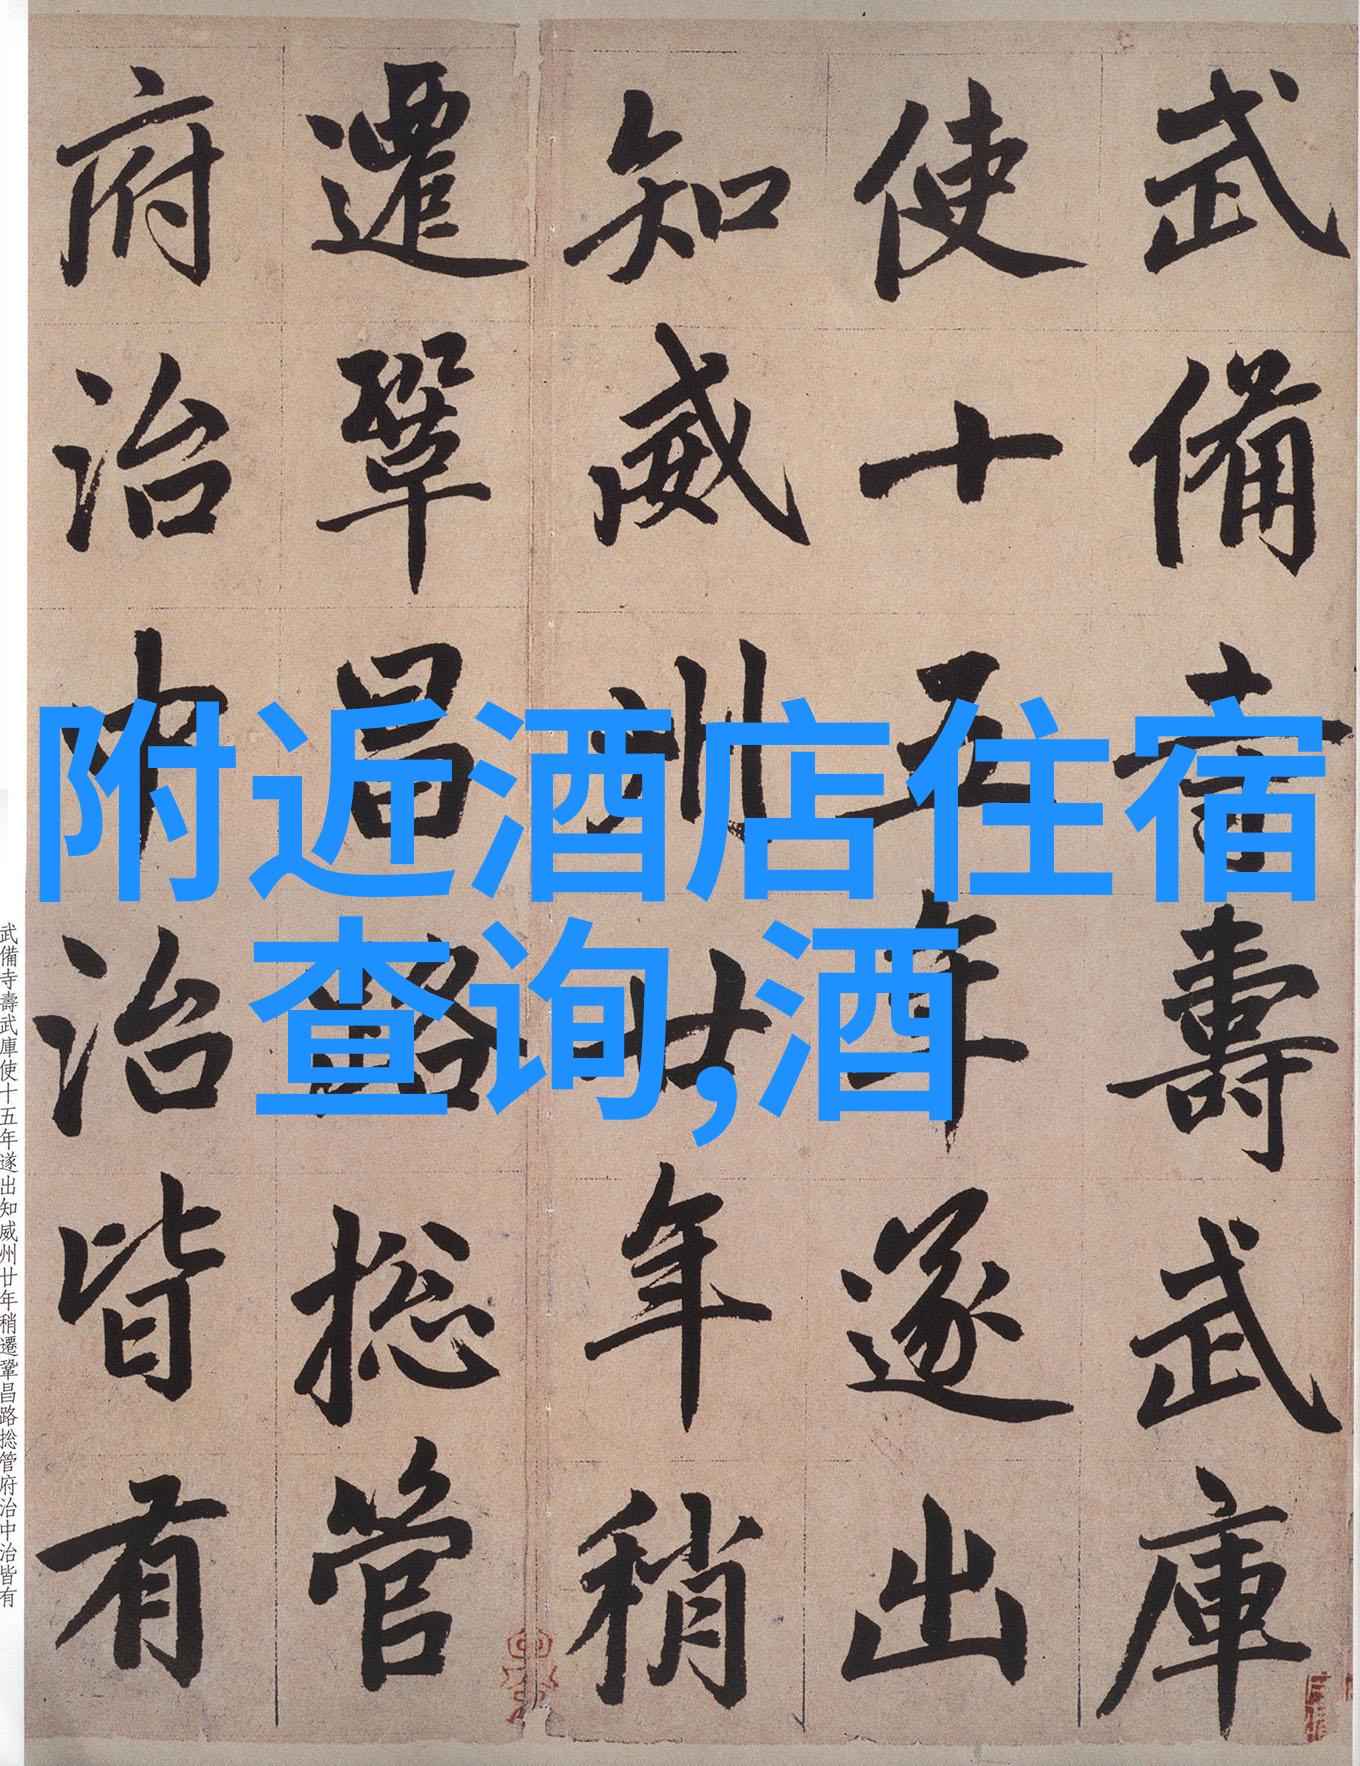 武備寺壽武庫
使十五年遂出
知威州廿年稍
遷鞏昌路捴管
府治中治皆有
附近酒店住宿
查询,酒
武備寺壽武庫使十五年遂出知威州廿年稍遷鞏昌路捴管府治中治皆有